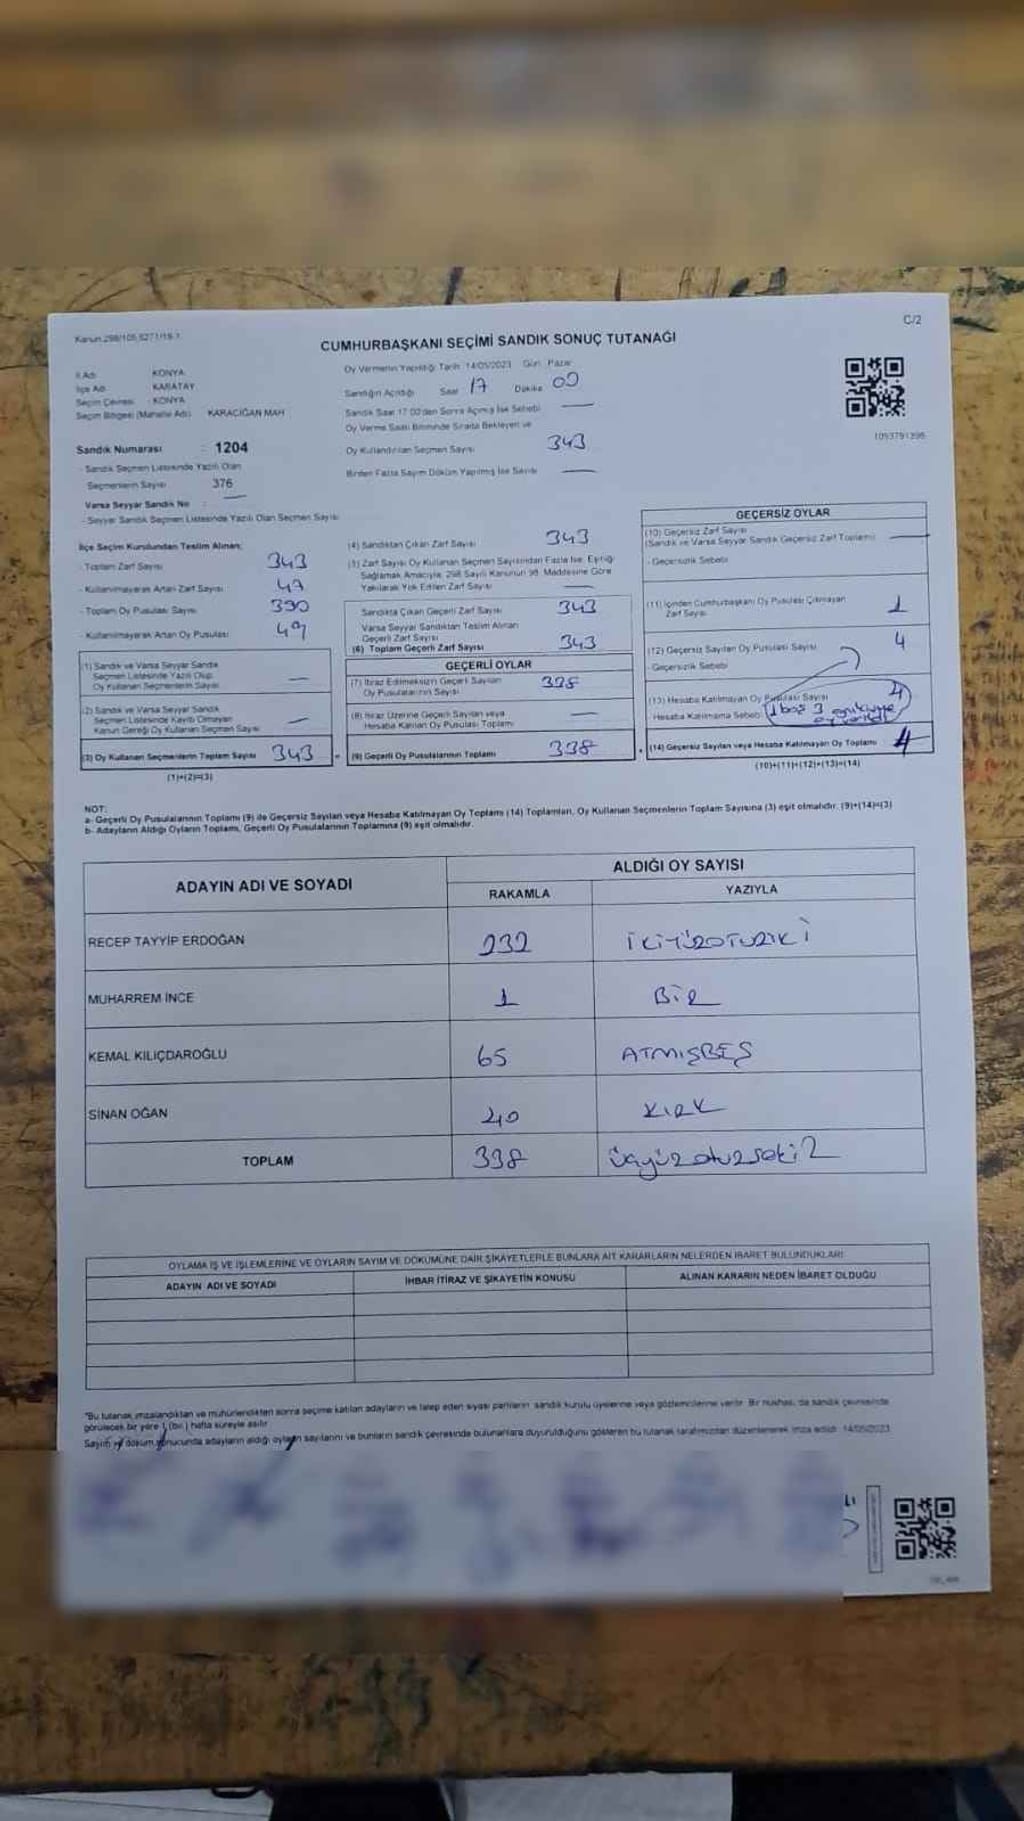 Kanun:298/105,6271/19-1
C/2
CUMHURBAŞKANI SEÇİMİ SANDIK SONUÇ TUTANAĞI
İl Adı : KONYA
İlçe Adı : KARATAY
Seçim Çevresi : KONYA
Seçim Bölgesi (Mahalle Adı) : KARACİĞAN MAH
Sandık Numarası : 1204
- Sandık Seçmen Listesinde Yazılı Olan
Seçmenlerin Sayısı : 376
Varsa Seyyar Sandık No : —
- Seyyar Sandık Seçmen Listesinde Yazılı Olan Seçmen Sayısı
Oy Vermenin Yapıldığı Tarih: 14/05/2023 Gün: Pazar
Sandığın Açıldığı Saat 17 Dakika 00
Sandık Saat 17.00'den Sonra Açılmış İse Sebebi —
Oy Verme Saati Bitiminde Sırada Bekleyen ve
Oy Kullandırılan Seçmen Sayısı 343
Birden Fazla Sayım Döküm Yapılmış İse Sayısı —
1093791396
İlçe Seçim Kurulundan Teslim Alınan;
- Toplam Zarf Sayısı 343
- Kullanılmayarak Artan Zarf Sayısı 47
- Toplam Oy Pusulası Sayısı 390
- Kullanılmayarak Artan Oy Pusulası 49
(1) Sandık ve Varsa Seyyar Sandık
Seçmen Listesinde Yazılı Olup
Oy Kullanan Seçmenlerin Sayısı —
(2) Sandık ve Varsa Seyyar Sandık
Seçmen Listesinde Kayıtlı Olmayan
Kanun Gereği Oy Kullanan Seçmen Sayısı —
(3) Oy Kullanan Seçmenlerin Toplam Sayısı 343 =
(1)+(2)=(3)
(4) Sandıktan Çıkan Zarf Sayısı 343
(5) Zarf Sayısı Oy Kullanan Seçmen Sayısından Fazla İse; Eşitliği
Sağlamak Amacıyla, 298 Sayılı Kanunun 98. Maddesine Göre
Yakılarak Yok Edilen Zarf Sayısı —
Sandıkta Çıkan Geçerli Zarf Sayısı 343
Varsa Seyyar Sandıktan Teslim Alınan
Geçerli Zarf Sayısı
(6) Toplam Geçerli Zarf Sayısı 343
GEÇERLİ OYLAR
(7) İtiraz Edilmeksizin Geçerli Sayılan
Oy Pusulalarının Sayısı 338
(8) İtiraz Üzerine Geçerli Sayılan veya
Hesaba Katılan Oy Pusulası Toplamı —
(9) Geçerli Oy Pusulalarının Toplamı 338 +
GEÇERSİZ OYLAR
(10) Geçersiz Zarf Sayısı
(Sandık ve Varsa Seyyar Sandık Geçersiz Zarf Toplamı) —
- Geçersizlik Sebebi
(11) İçinden Cumhurbaşkanı Oy Pusulası Çıkmayan
Zarf Sayısı 1
(12) Geçersiz Sayılan Oy Pusulası Sayısı 4
- Geçersizlik Sebebi
(13) Hesaba Katılmayan Oy Pusulası Sayısı 4
Hesaba Katılmama Sebebi 1 boş 3
(14) Geçersiz Sayılan veya Hesaba Katılmayan Oy Toplamı 4
(10)+(11)+(12)+(13)=(14)
NOT:
a- Geçerli Oy Pusulalarının Toplamı (9) ile Geçersiz Sayılan veya Hesaba Katılmayan Oy Toplamı (14) Toplamları, Oy Kullanan Seçmenlerin Toplam Sayısına (3) eşit olmalıdır. (9)+(14)=(3)
b- Adayların Aldığı Oyların Toplamı, Geçerli Oy Pusulalarının Toplamına (9) eşit olmalıdır.
ADAYIN ADI VE SOYADI
ALDIĞI OY SAYISI
RAKAMLA YAZIYLA
RECEP TAYYİP ERDOĞAN 232 İKİYÜZOTUZİKİ
MUHARREM İNCE 1 BİR
KEMAL KILIÇDAROĞLU 65 ATMIŞBEŞ
SİNAN OĞAN 40 KIRK
TOPLAM 338 üçyüzotuzsekiz
OYLAMA İŞ VE İŞLEMLERİNE VE OYLARIN SAYIM VE DÖKÜMÜNE DAİR ŞİKAYETLERLE BUNLARA AİT KARARLARIN NELERDEN İBARET BULUNDUKLARI
ADAYIN ADI VE SOYADI İHBAR İTİRAZ VE ŞİKAYETİN KONUSU ALINAN KARARIN NEDEN İBARET OLDUĞU
"Bu tutanak imzalandıktan ve mühürlendikten sonra seçime katılan adayların ve talep eden siyasi partilerin sandık kurulu üyelerine veya gözlemcilerine verilir. Bir nüshası, da sandık çevresinde
görülecek bir yere 1 (bir) hafta süreyle asılır.
Sayım ve döküm sonucunda adayların aldığı oyların sayılarını ve bunların sandık çevresinde bulunanlara duyurulduğunu gösteren bu tutanak tarafımızdan düzenlenerek imza edildi. 14/05/2023